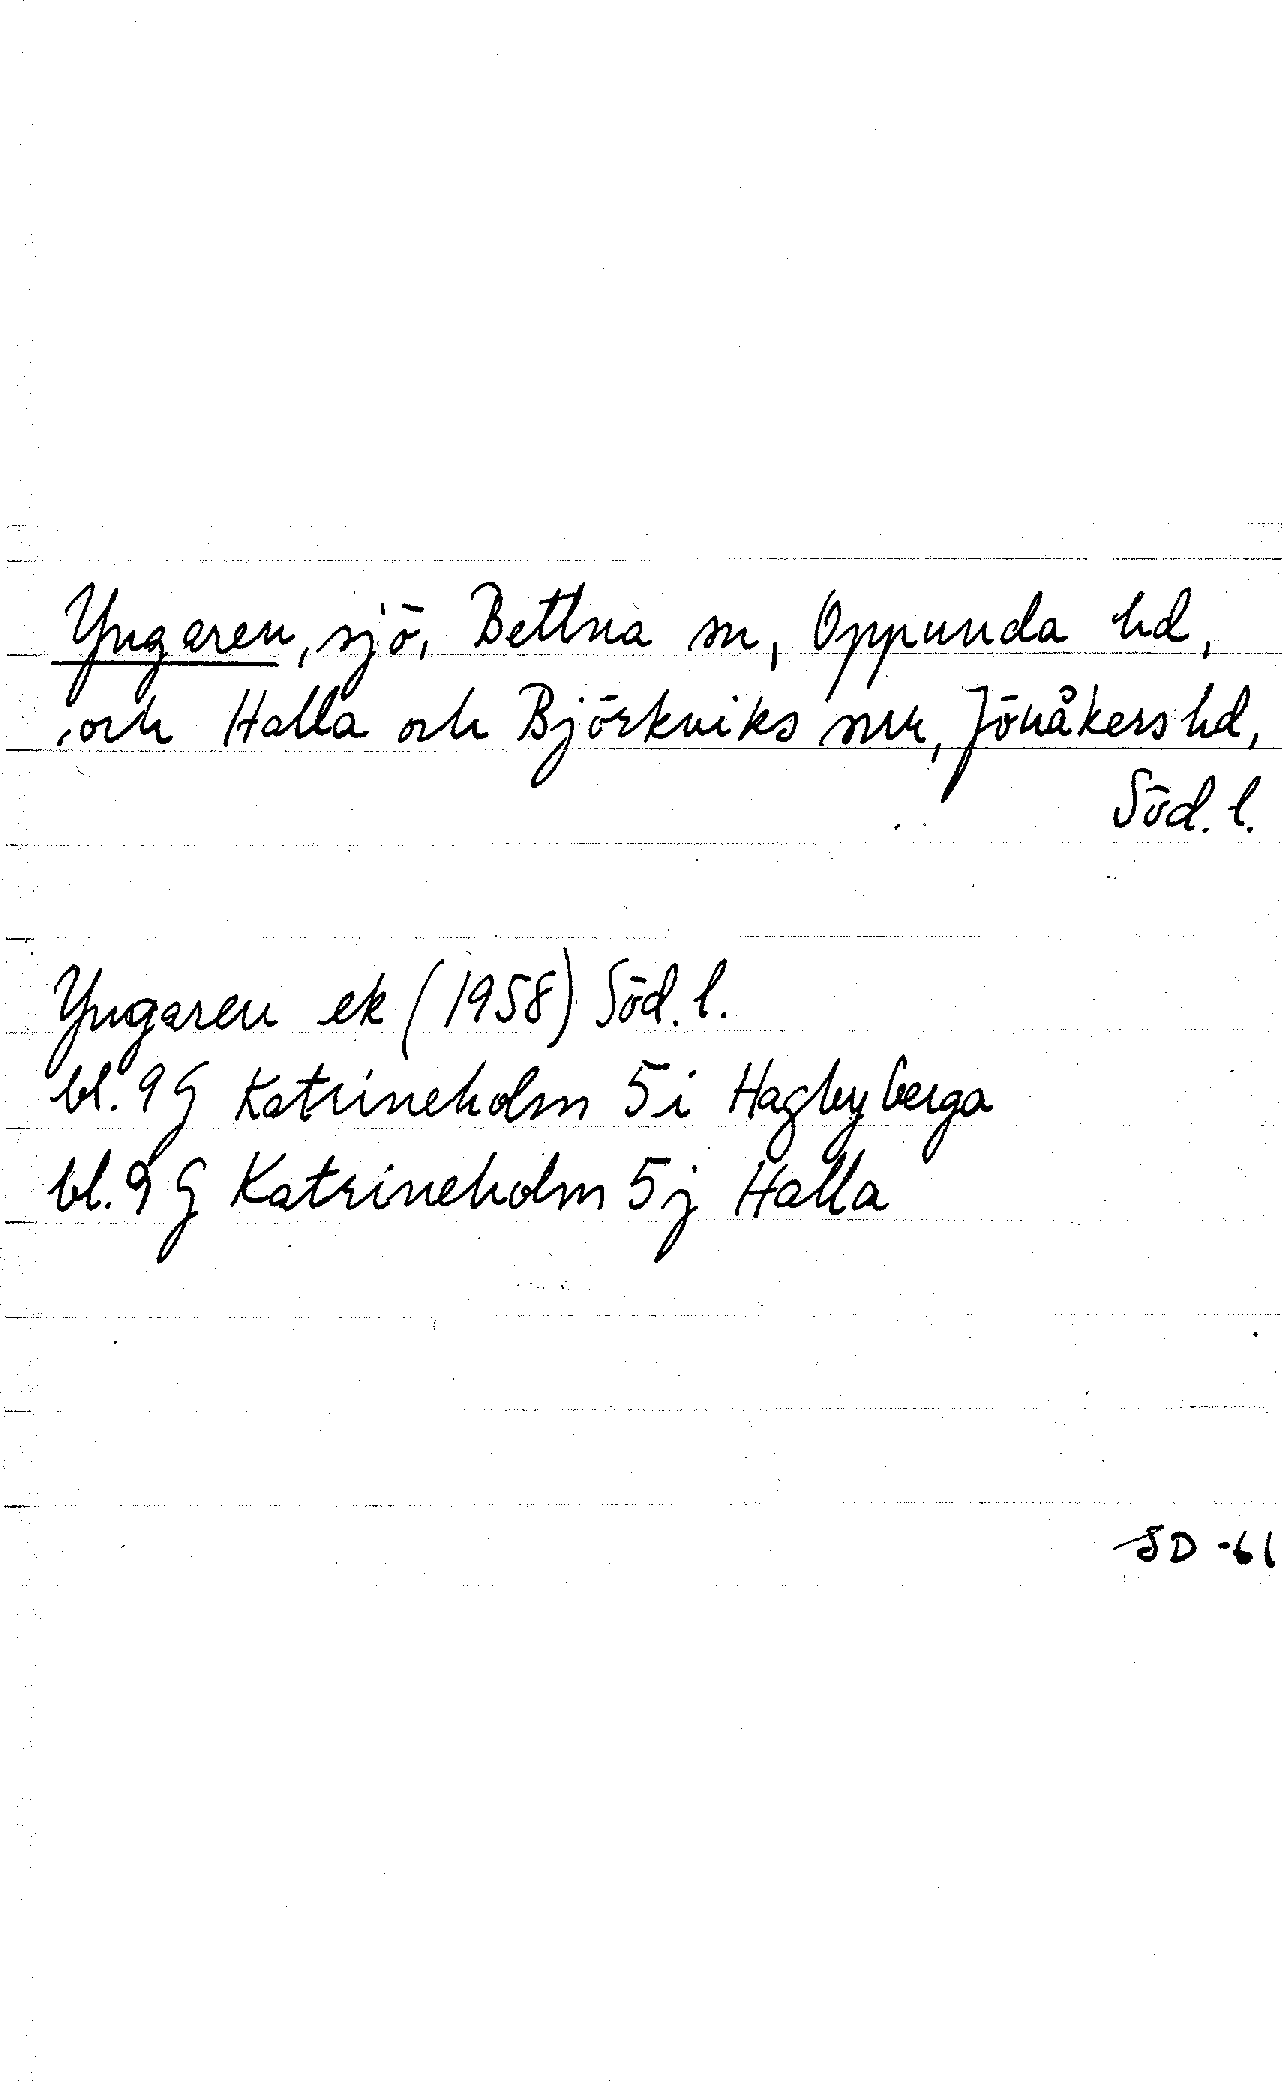 Yngaren, sjö, Bettna sn, Oppunda hd,
och Halla och Björkviks snr, Jönåkers hd,
Söd. l.
Yngaren ek (1958) Söd. l.
bl. 9 G Katrineholm 5 i Hagbyberga
bl. 9 G Katrineholm 5 j Halla
SD -61